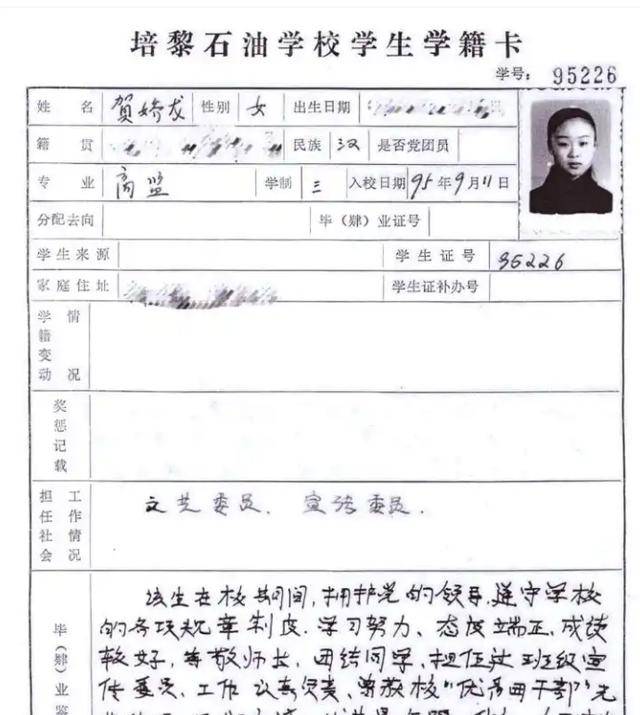 培黎石油学校学生学籍卡
学号: 95226
姓名 贺娇龙 性别 女 出生日期
籍贯 民族 汉 是否党团员
专业 商监 学制 三 入校日期 95年9月11日
分配去向 毕(肄)业证号
学生来源 学生证号 95226
家庭住址 学生证补办号
学籍变动情况
奖惩记载
担任社会工作情况 文艺委员. 宣传委员.
毕(肄)业鉴
该生在校期间,拥护党的领导,遵守学校
的各项规章制度.学习努力、态度端正,成绩
较好,尊敬师长,团结同学,担任过班级宣
传委员,工作认真负责,曾获校“优秀团干部”